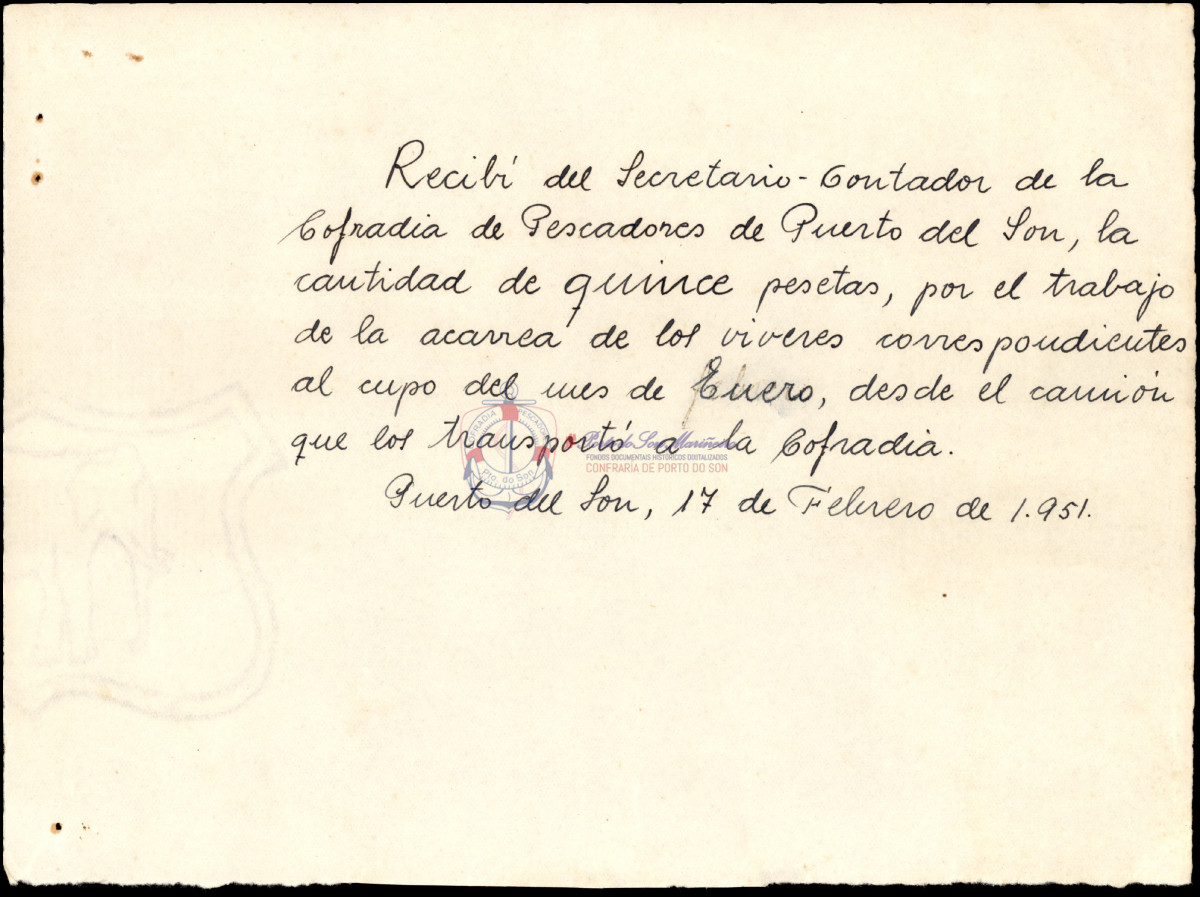 Recibí del Secretario-Contador de la
Cofradia de Pescadores de Puerto del Son, la
cantidad de quince pesetas, por el trabajo
de la acarrea de los viveres correspondientes
al cupo del mes de Enero, desde el camión
que los transportó a la Cofradia.
Puerto del Son, 17 de Febrero de 1.951.
COFRADIA PESCADORES
Pto. do Son
Porto do Son Mariñeiro
FONDOS DOCUMENTAIS HISTÓRICOS DIXITALIZADOS
CONFRARÍA DE PORTO DO SON